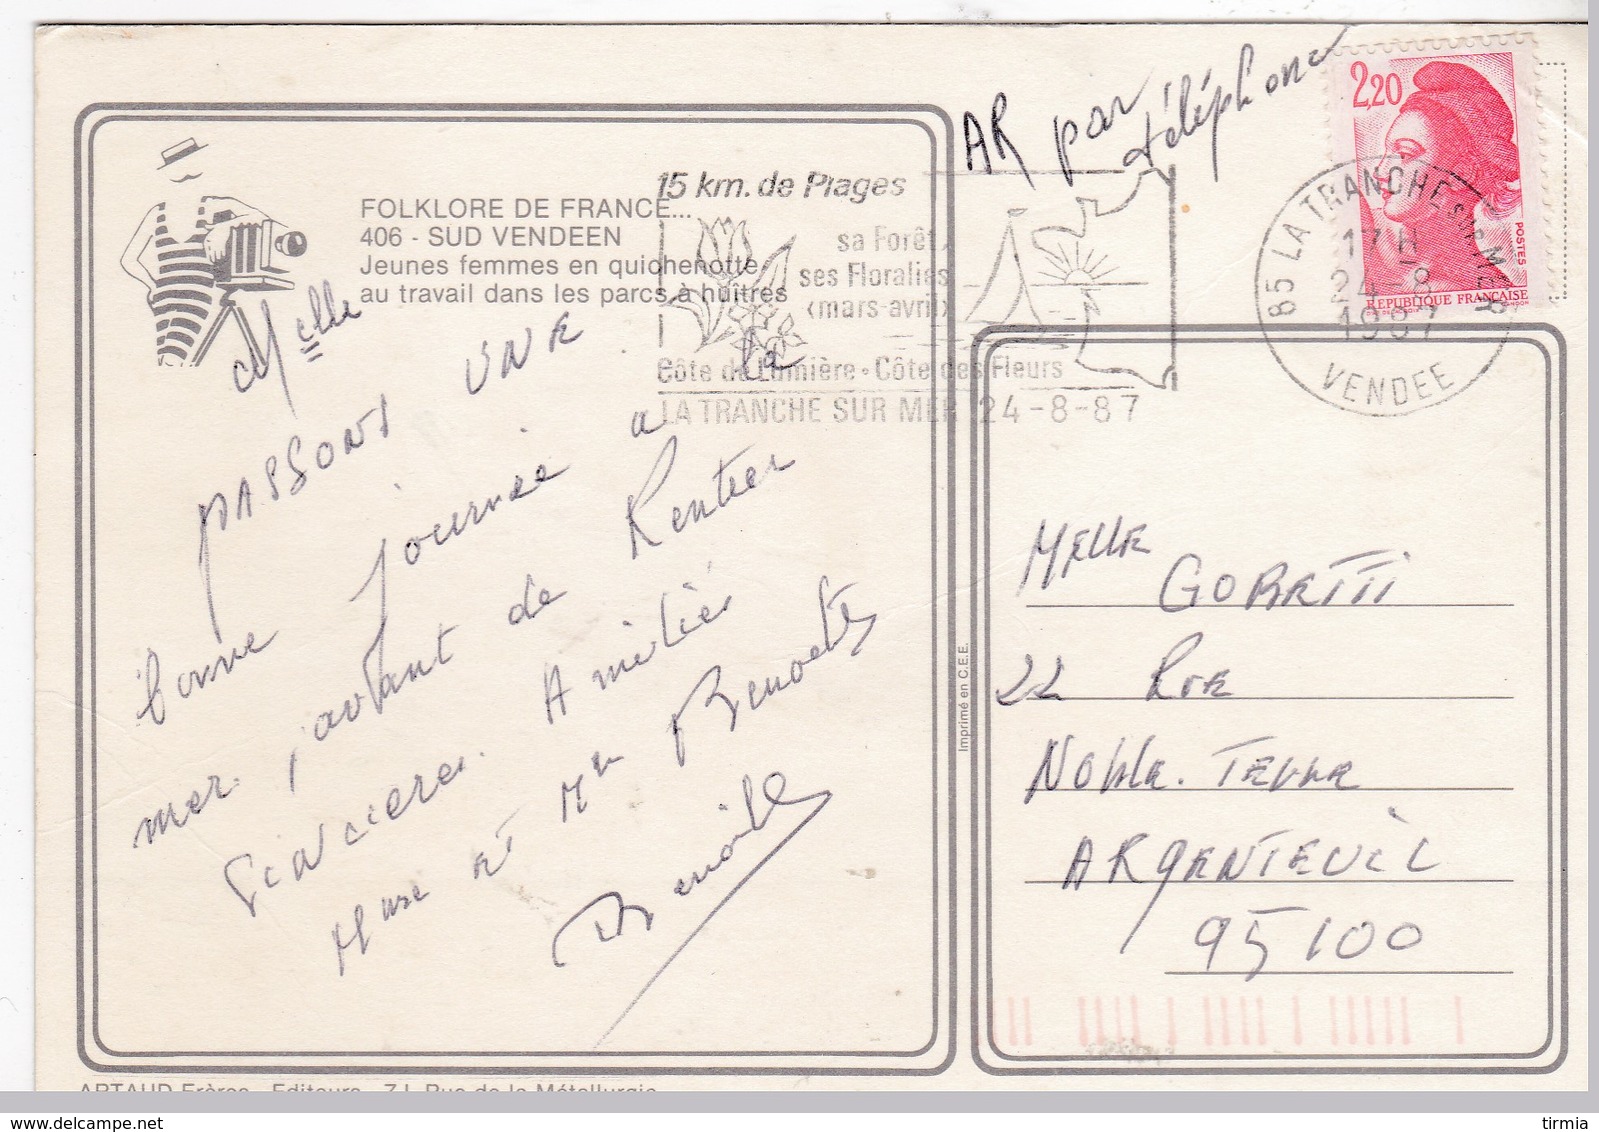 AR par téléphone
2,20
POSTES
REPUBLIQUE FRANÇAISE
FOLKLORE DE FRANCE...
406 - SUD VENDEEN
Jeunes femmes en quichenotte
au travail dans les parcs à huîtres
15 km. de Plages
sa Forêt
ses Floralies
(mars-avril)
Côte de Lumière • Côte des Fleurs
LA TRANCHE SUR MER 24-8-87
85 LA TRANCHE S/ MER
17 H
24-8
1987
VENDEE
Melle
PASSONS UNE
bonne journée a la
mer. avant de Rentrer
Amitiés
Mme et Mr Benoit
Benoit
Melle
GORETTI
22 Rue
Noble. Terre
ARGENTEUIL
95100
Imprimé en C.E.E.
ARTAUD Frères - Editeurs - Z.I. Rue de la Métallurgie
tirmia